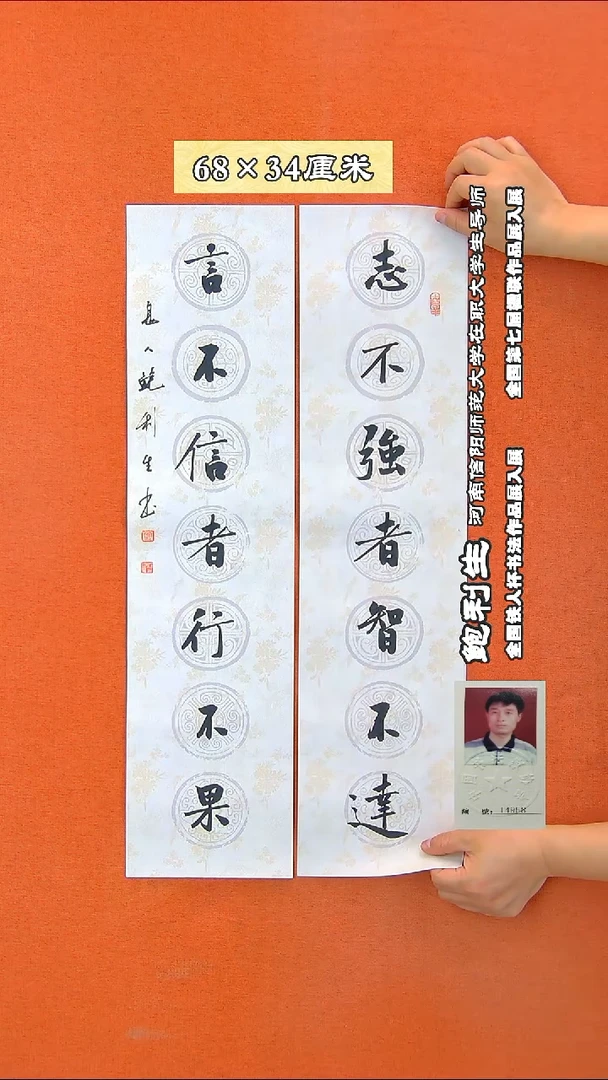 68×34厘米
志不強者智不達
言不信者行不果
息人鲍利生书
鲍利生 河南信阳师范大学在职大学生导师
全国第七届楹联作品展入展
全国铁人杯书法作品展入展